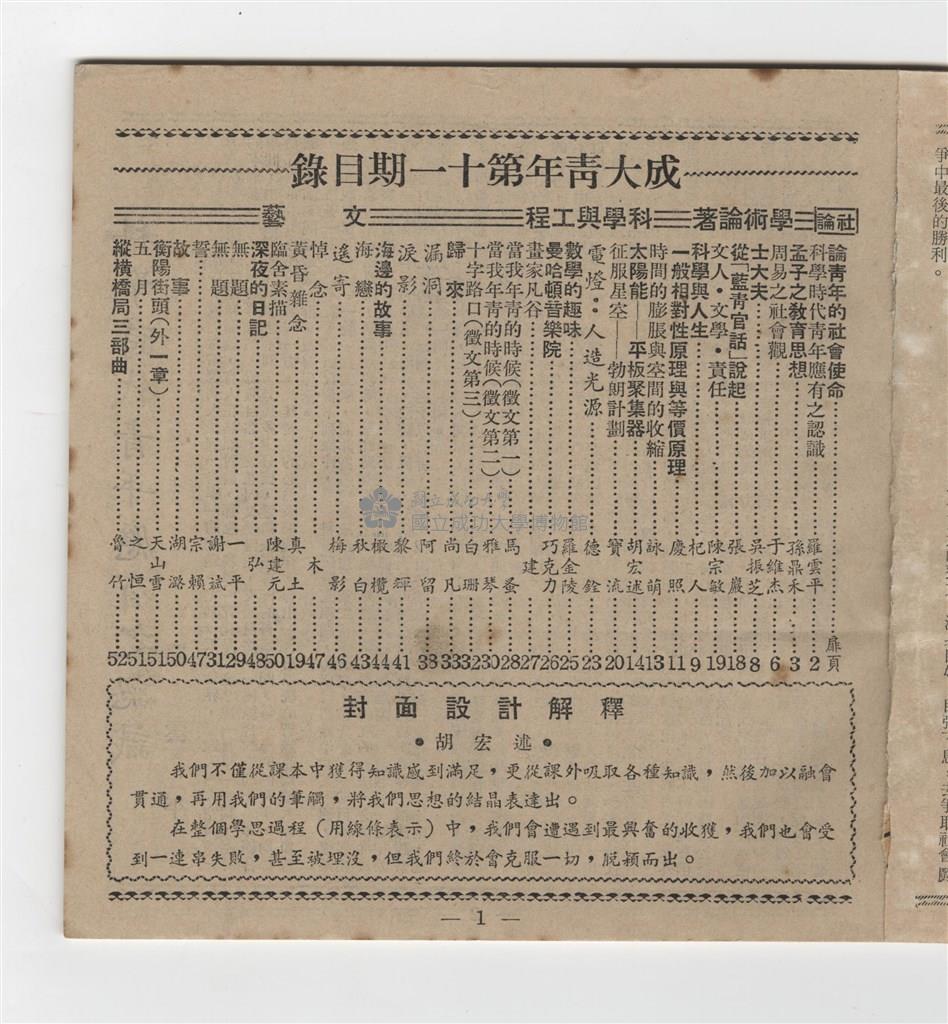 成大青年第十一期目錄
社論
學術論著
科學與工程
文藝
論青年的社會使命……扉頁
科學時代青年應有之認識……羅雲平……2
孟子之教育思想……孫鼎禾……3
周易之社會觀……于維杰……6
士大夫……吳振芝……8
從「藍青官話」說起……張巖……18
文人·文學·責任……陳宗敏……19
科學與人生……杞人……9
一般相對性原理與等價原理……慶照……11
時間的膨脹與空間的收縮……詠萌……13
太陽能——平板聚集器……胡宏述……14
征服星空——勃朗計劃……寶流……20
電燈·人造光源……德銓……23
數學的趣味……羅金陵……25
曼哈頓音樂院……巧克力……26
畫家凡谷……建……27
當我年青的時候(徵文第一)……馬蚤……28
當我年青的時候(徵文第二)……雅琴……30
十字路口(徵文第三)……白珊……32
歸來……尚凡……33
漏洞……阿留……38
淚影……黎輝……41
海邊的故事……橄欖……44
海戀……秋白……43
遙寄……梅影……46
悼念……木……47
黃昏雜念……真土……19
臨舍素描……陳建元……50
深夜的日記……弘……48
無題……一平……29
無題……謝斌……31
誓……宗賴……47
故事……湖潞……50
衡陽街頭(外一章)……天山雪……51
五月……之恒……51
縱橫橋局三部曲……魯竹……52
封面設計解釋
•胡宏述•
我們不僅從課本中獲得知識感到滿足，更從課外吸取各種知識，然後加以融會
貫通，再用我們的筆觸，將我們思想的結晶表達出。
在整個學思過程(用線條表示)中，我們會遭遇到最興奮的收獲，我們也會受
到一連串失敗，甚至被埋沒，但我們終於會克服一切，脫穎而出。
— 1 —
國立成功大學
國立成功大學博物館
爭中最後的勝利。